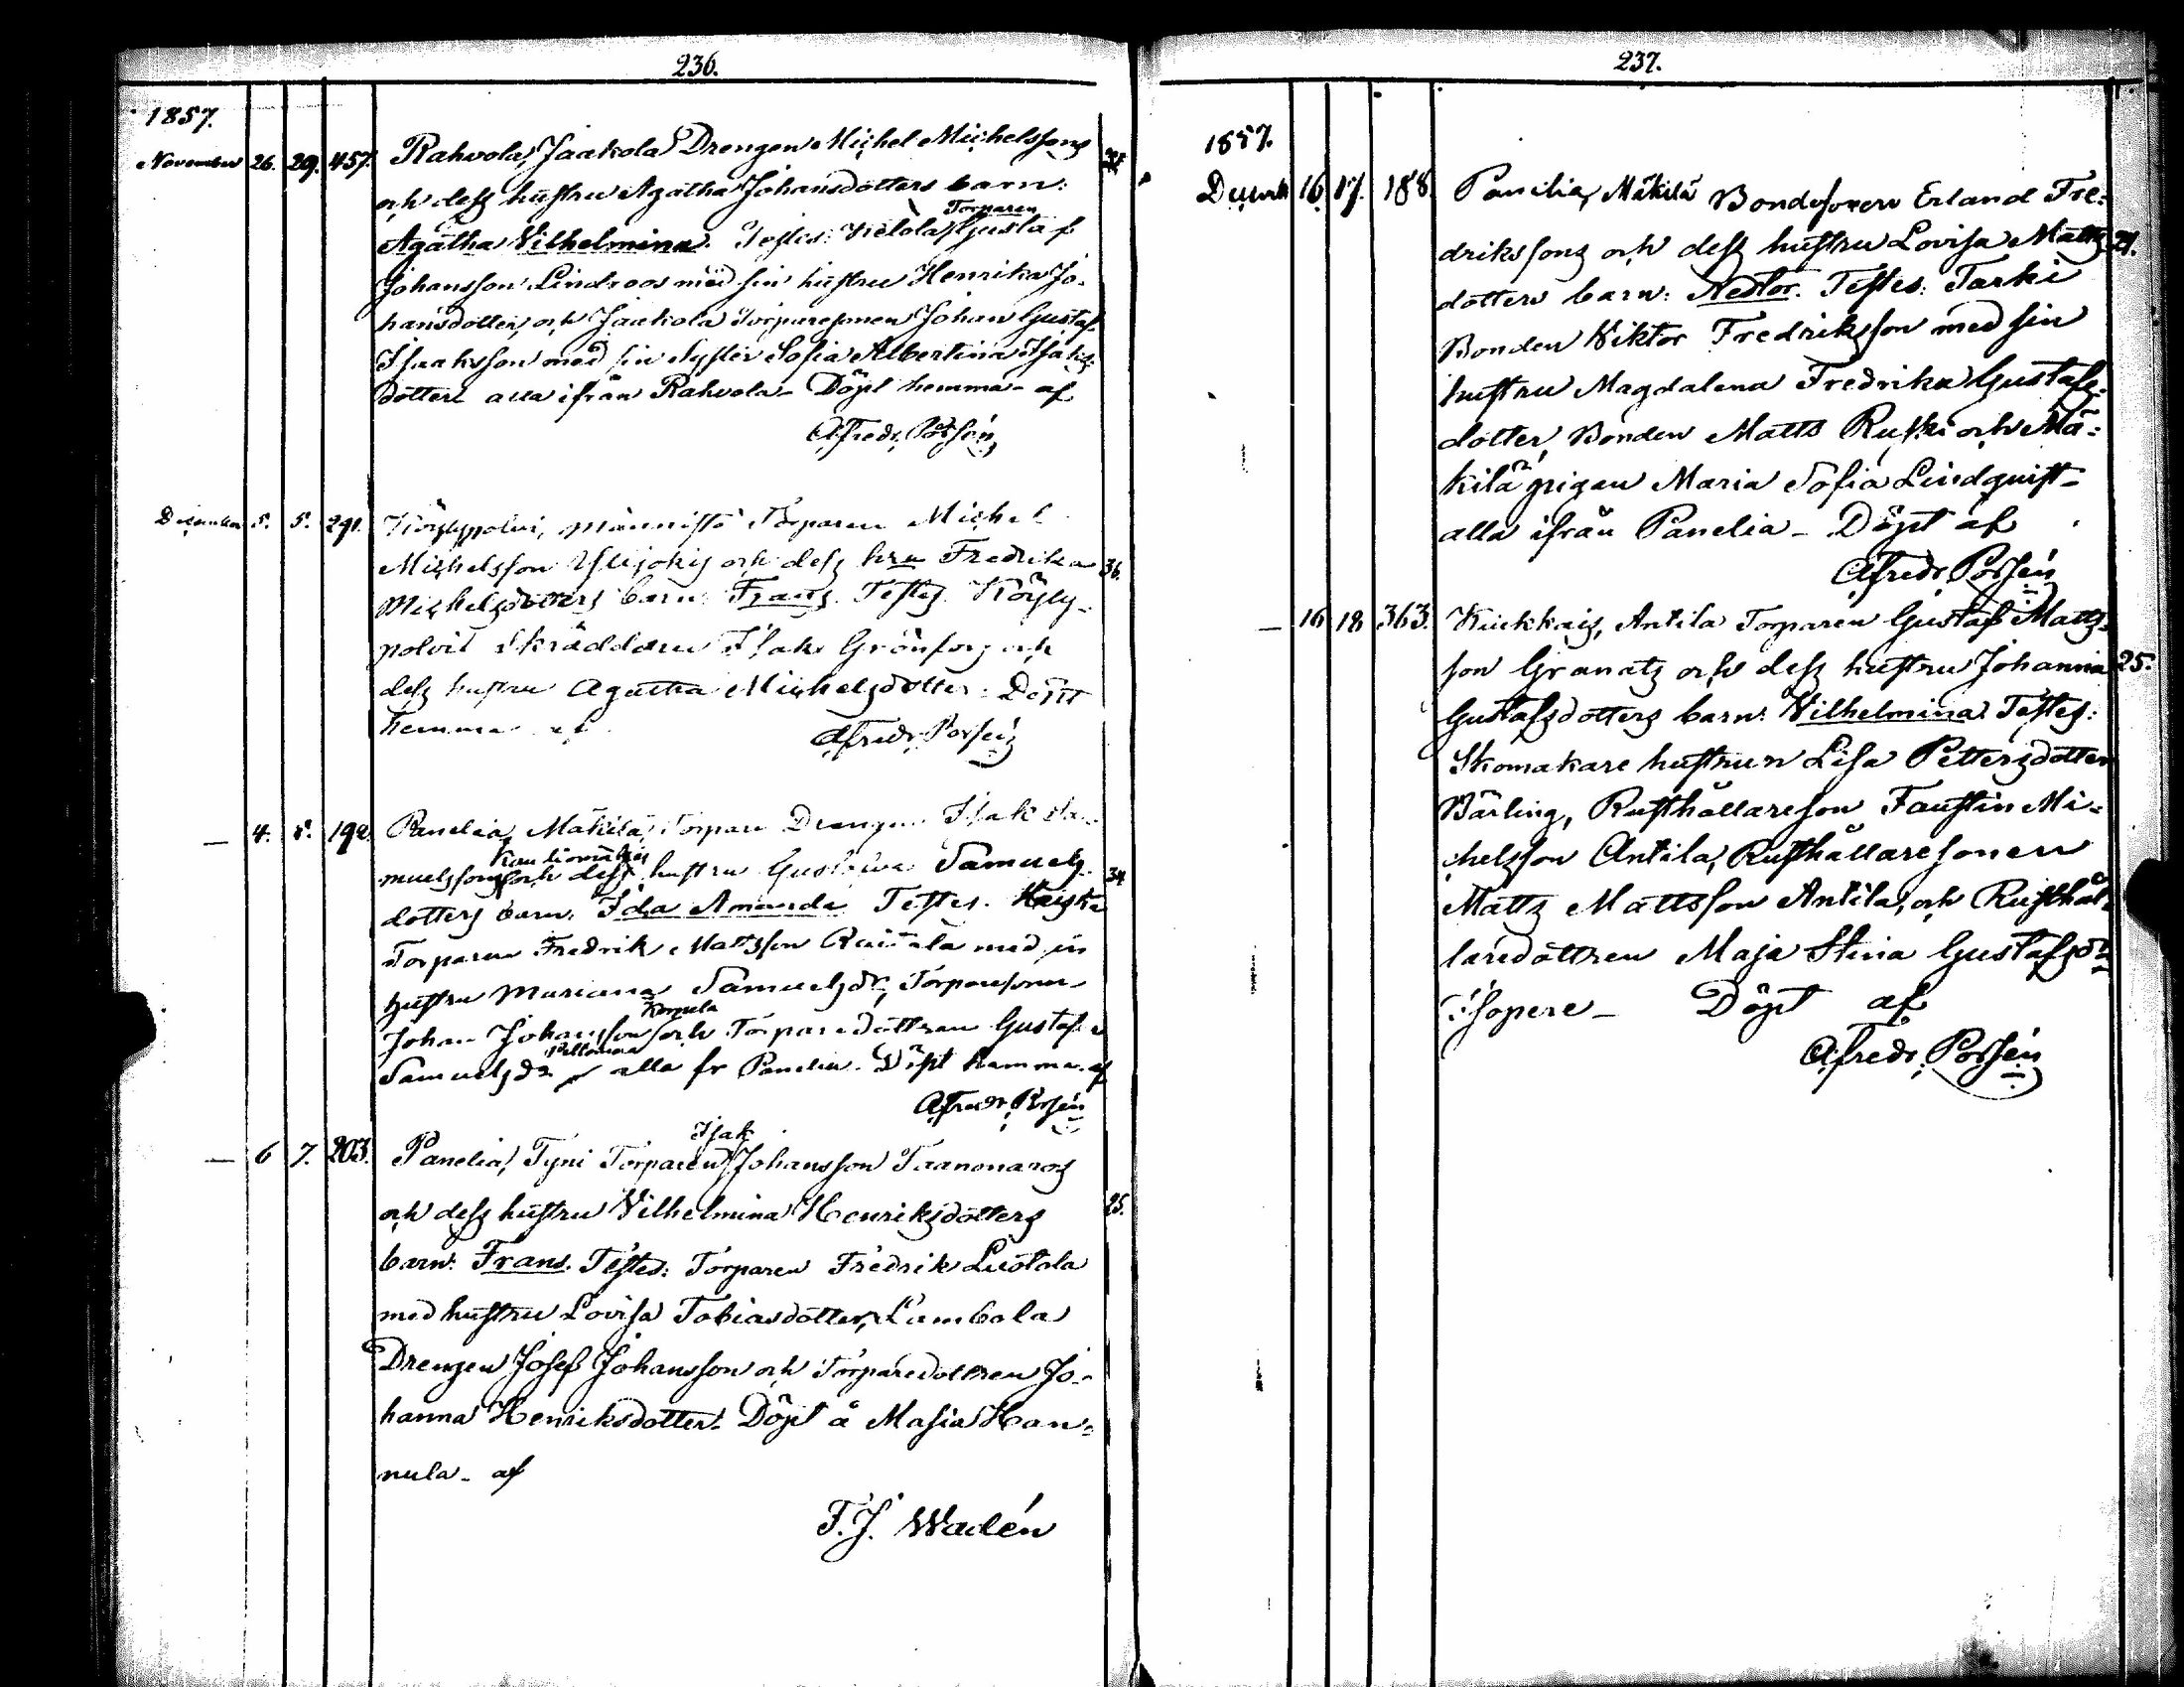 236.
1857.
November 26. 29. 457. Rahvola, Jaakola Drengen Michel Michelssons
och dess hustru Agatha Johansdotters barn:
Torparen
Agatha Vilhelmina. Testes: Gustaf
Johansson Lindroos med sin hustru Henrika Jo-
hansdotter, och Jaakola Torparesonen Johan Gustaf
Isaksson med sin syster Sofia Albertina Isaks-
dotter alla ifrån Rahvola. Döpt hemma af
Alfredr. Porsén
December 5. 5. 291. Köylypolvi, Männistö Torparen Michel
Michelsson och dess hru Fredrika 36.
Michelsdotters barn: Frans. Testes. Köyly-
polvi Skräddaren Isak Grönfors och
dess hustru Agatha Michelsdotter. Döpt
hemma af Alfredr. Porsén
— 4. 5. 192. Panelia, Mäkilä, Torpare Drengen Isak Sa-
muelssons och dess hustru Gustava Samuels- 34
dotters barn: Ida Amanda Testes.
Torparen Fredrik Mattsson med sin
hustru Mariana Samuelsdr, Torparesonen
Korpela
Johan Johansson och Torparedottren Gustafva
Samuelsdr alla fr Panelia. Döpt hemma af
Alfredr. Porsén
Isak
— 6 7. 203. Panelia, Tyni Torparen Johansson Taanonaros
och dess hustru Vilhelmina Henriksdotters 25.
barn: Frans. Testes: Torparen Fredrik Lustala
med hustru Lovisa Tobiasdotter, Lambola
Drengen Josef Johansson och Torparedottren Jo-
hanna Henriksdotter. Döpt å Masia Han-
nula. af
F. J. Wadén
237.
1857.
Decemb 16. 17. 188. Panelia, Mäkilä Bondesonen Erland Fre-
drikssons och dess hustru Lovisa Matts 21.
dotters barn: Nestor. Testes: Tarki
Bonden Viktor Fredriksson med sin
hustru Magdalena Fredrika Gustafs-
dotter, Bonden Matts Ruski och Mä-
kilä pigan Maria Sofia Lindquist-
alla ifrån Panelia - Döpt af
Alfredr. Porsén
— 16 18 363. Kiukkais, Antila Torparen Gustaf Matts-
son Granats och dess hustru Johanna 25.
Gustafsdotters barn: Vilhelmina. Testes:
Skomakare hustrun Lisa Pettersdotter
Bärling, Rusthållareson Faustin Mi-
chelsson Antila, Rusthållaresonen
Matts Mattsson Antila, och Rusthål-
laredottren Maja Stina Gustafsdr
Isopere - Döpt af
Alfredr. Porsén